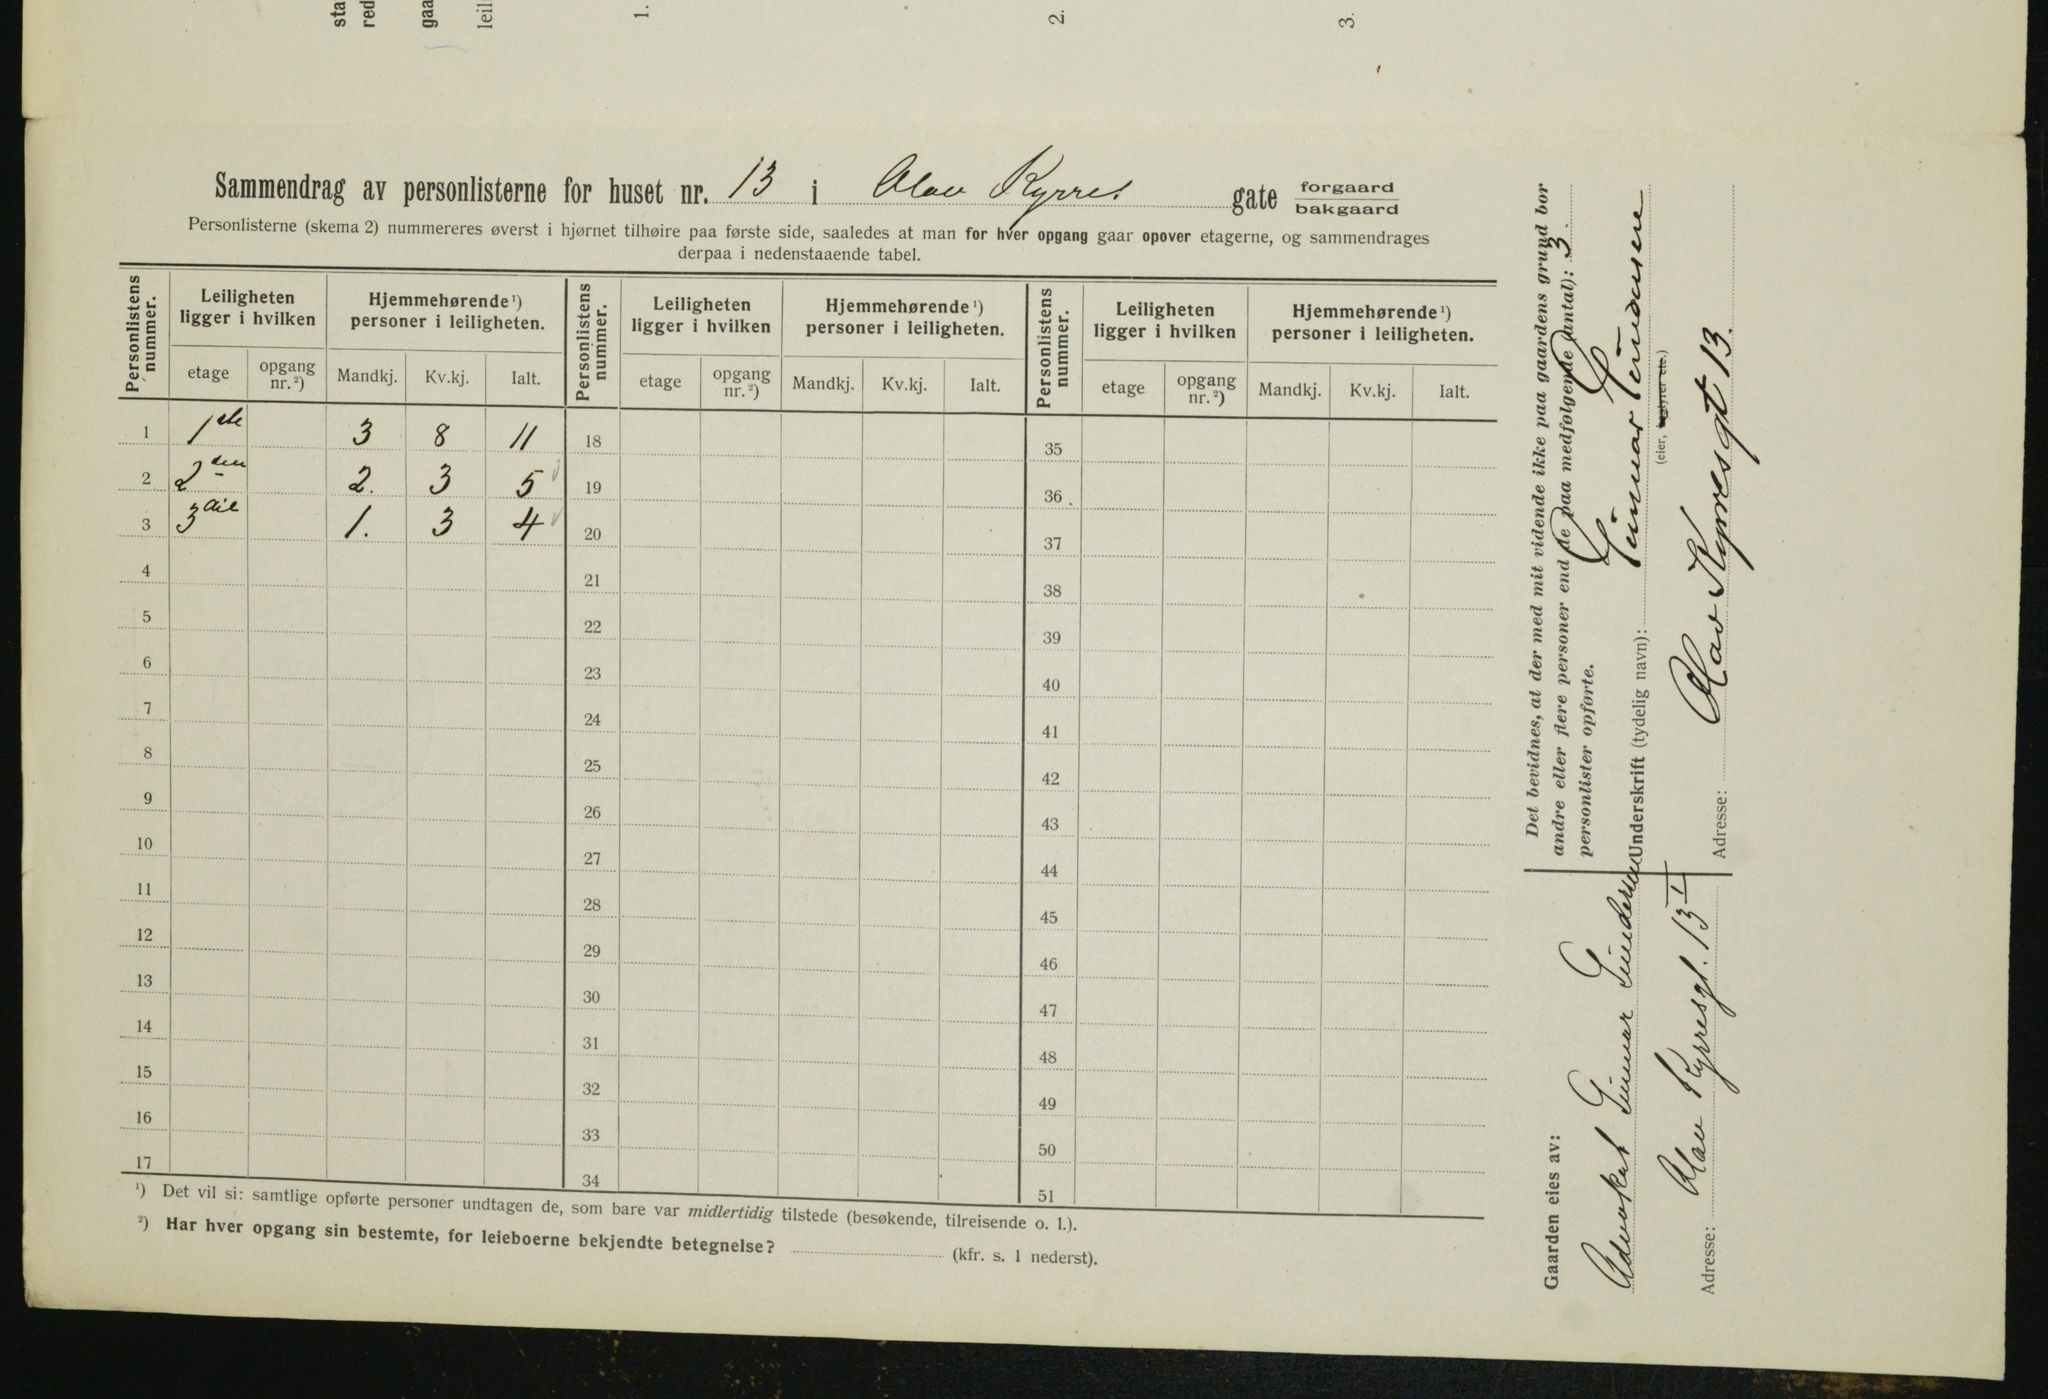 sta
red
gaa
leil
1.
2.
3.
Sammendrag av personlisterne for huset nr. 13 i Olav Kyrres gate forgaard bakgaard
Personlisterne (skema 2) nummereres øverst i hjørnet tilhøire paa første side, saaledes at man for hver opgang gaar opover etagerne, og sammendrages
derpaa i nedenstaaende tabel.
Personlistens nummer. Leiligheten ligger i hvilken Hjemmehørende ¹) personer i leiligheten. Personlistens nummer. Leiligheten ligger i hvilken Hjemmehørende ¹) personer i leiligheten. Personlistens nummer. Leiligheten ligger i hvilken Hjemmehørende ¹) personer i leiligheten.
etage opgang nr. ²) Mandkj. Kv.kj. Ialt. etage opgang nr. ²) Mandkj. Kv.kj. Ialt. etage opgang nr. ²) Mandkj. Kv.kj. Ialt.
1 1ste 3 8 11 18 35
2 2den 2. 3 5 19 36
3 3die 1. 3 4 20 37
4 21 38
5 22 39
6 23 40
7 24 41
8 25 42
9 26 43
10 27 44
11 28 45
12 29 46
13 30 47
14 31 48
15 32 49
16 33 50
17 34 51
¹) Det vil si: samtlige opførte personer undtagen de, som bare var midlertidig tilstede (besøkende, tilreisende o. l.).
²) Har hver opgang sin bestemte, for leieboerne bekjendte betegnelse? (kfr. s. 1 nederst).
Gaarden eies av:
Advokat Gunnar Gundersen
Adresse: Olav Kyrresgt. 13 I
Det bevidnes, at der med mit vidende ikke paa gaardens grund bor
andre eller flere personer end de paa medfølgende (antal): 3
personlister opførte.
Underskrift (tydelig navn): Gunnar Gundersen
(eier, bestyrer etc.)
Adresse: Olav Kyrresgt 13.